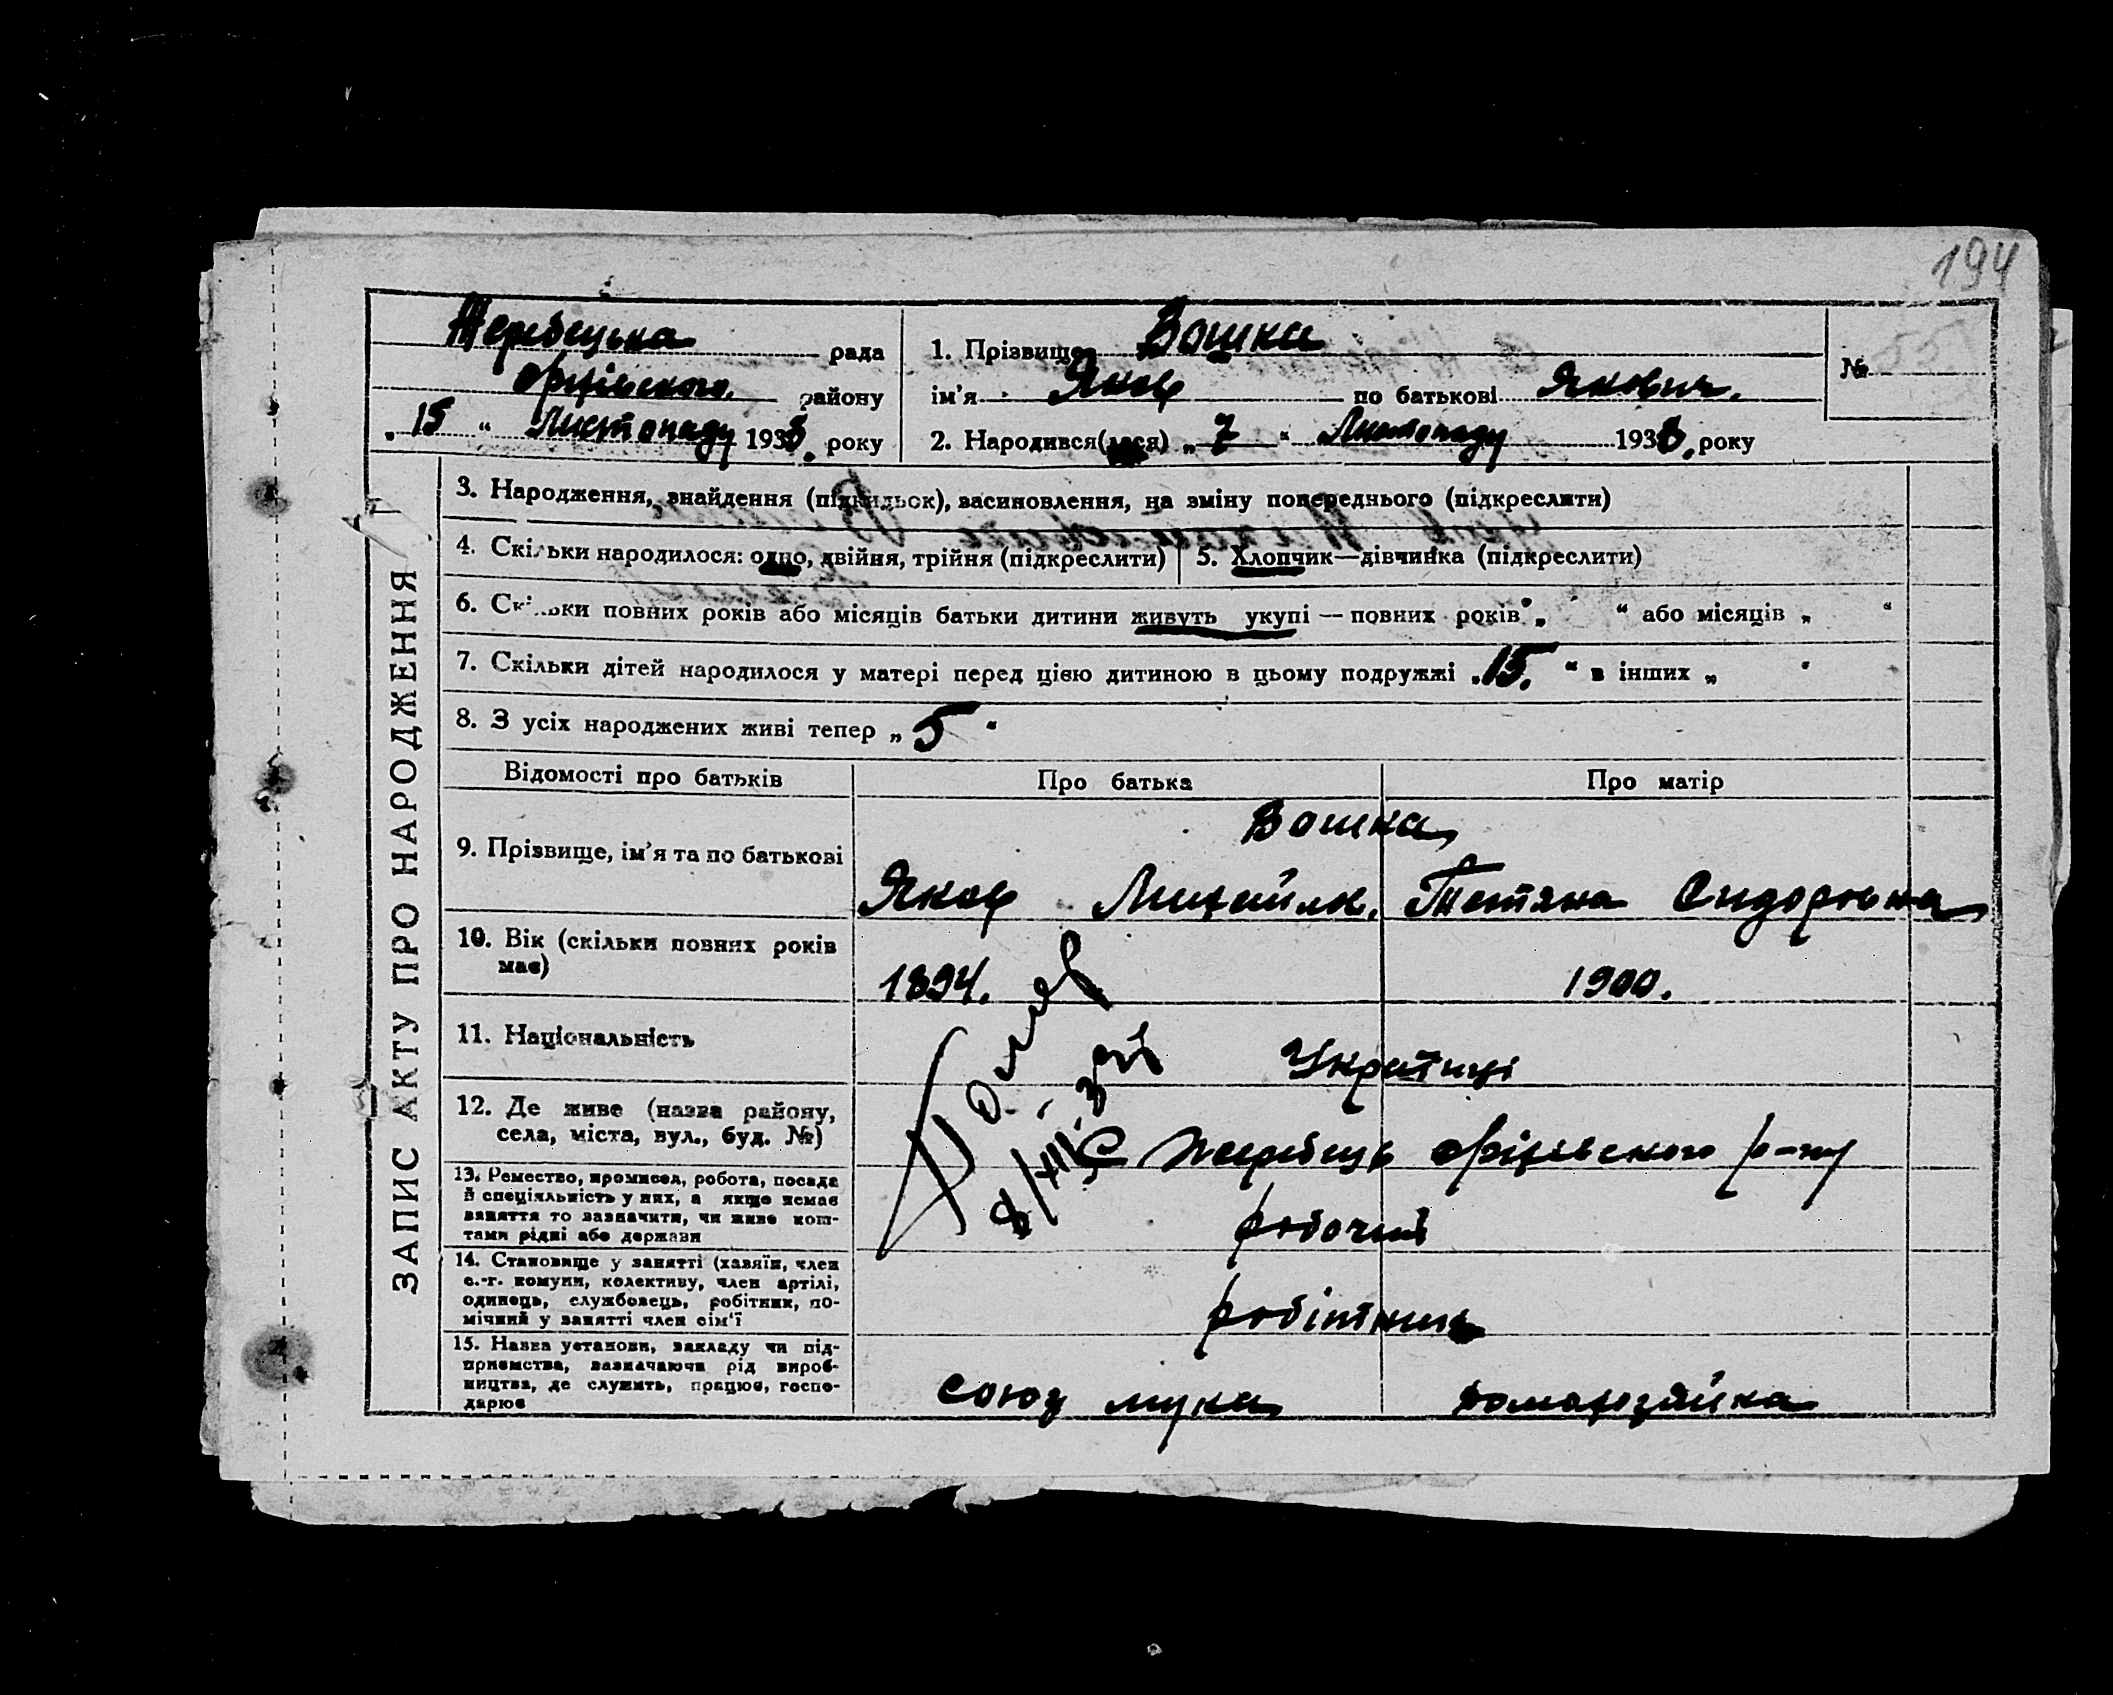 194
Жеребецька рада
Оріхівського району
„ 15 “ Листопаду 1938 року
1. Прізвище Вошка
ім’я Яков по батькові Якович.
2. Народився(лася) „ 7 “ Листопаду 1938 року
№
ЗАПИС АКТУ ПРО НАРОДЖЕННЯ
3. Народження, знайдення (підкидьок), засиновлення, на зміну попереднього (підкреслити)
4. Скільки народилося: одно, двійня, трійня (підкреслити) 5. Хлопчик—дівчинка (підкреслити)
6. Скільки повних років або місяців батьки дитини живуть укупі — повних років „ “ або місяців „ “
7. Скільки дітей народилося у матері перед цією дитиною в цьому подружжі „ 15. “ в інших „ “
8. З усіх народжених живі тепер „ 5 “
Відомості про батьків Про батька Про матір
Вошка
9. Прізвище, ім’я та по батькові
Яков Михайл. Тетяна Сидоровна
10. Вік (скільки повних років
має)
1894. 1900.
11. Національність
Українці
12. Де живе (назва району,
села, міста, вул., буд. №)
С Жеребець Оріхівського р-ну
13. Ремество, промисел, робота, посада
й спеціяльність у них, а якщо немає
заняття то зазначити, чи живе кош-
тами рідні або держави
робочий
14. Становище у занятті (хазяїн, член
с.-г. комуни, колективу, член артілі,
одинець, службовець, робітник, по-
мічний у занятті член сім’ї
робітник
15. Назва установи, закладу чи під-
приємства, зазначаючи рід вироб-
ництва, де служить, працює, госпо-
дарює
союз мука домахозяйка